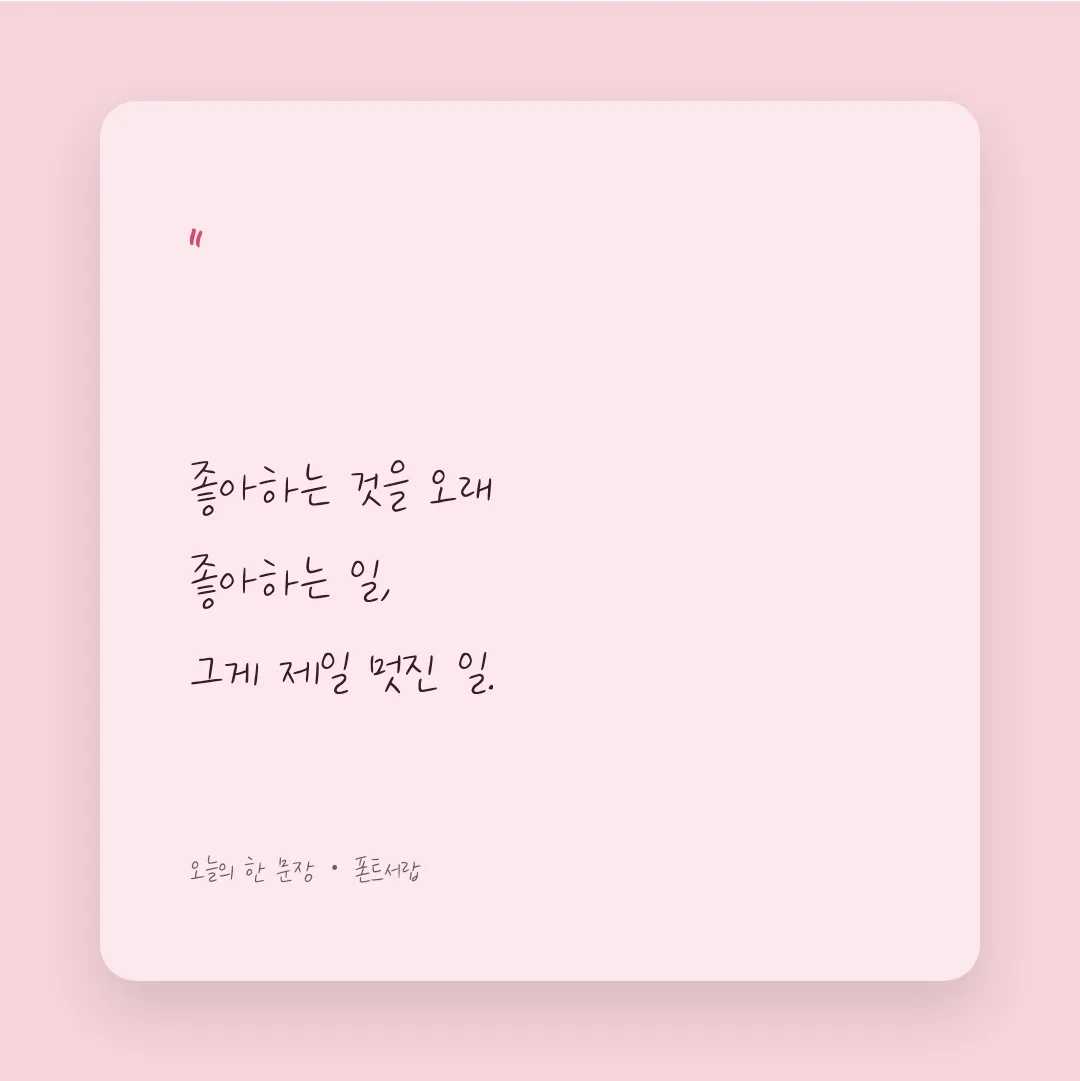 "
좋아하는 것을 오래
좋아하는 일,
그게 제일 멋진 일.
오늘의 한 문장 • 폰트서랍